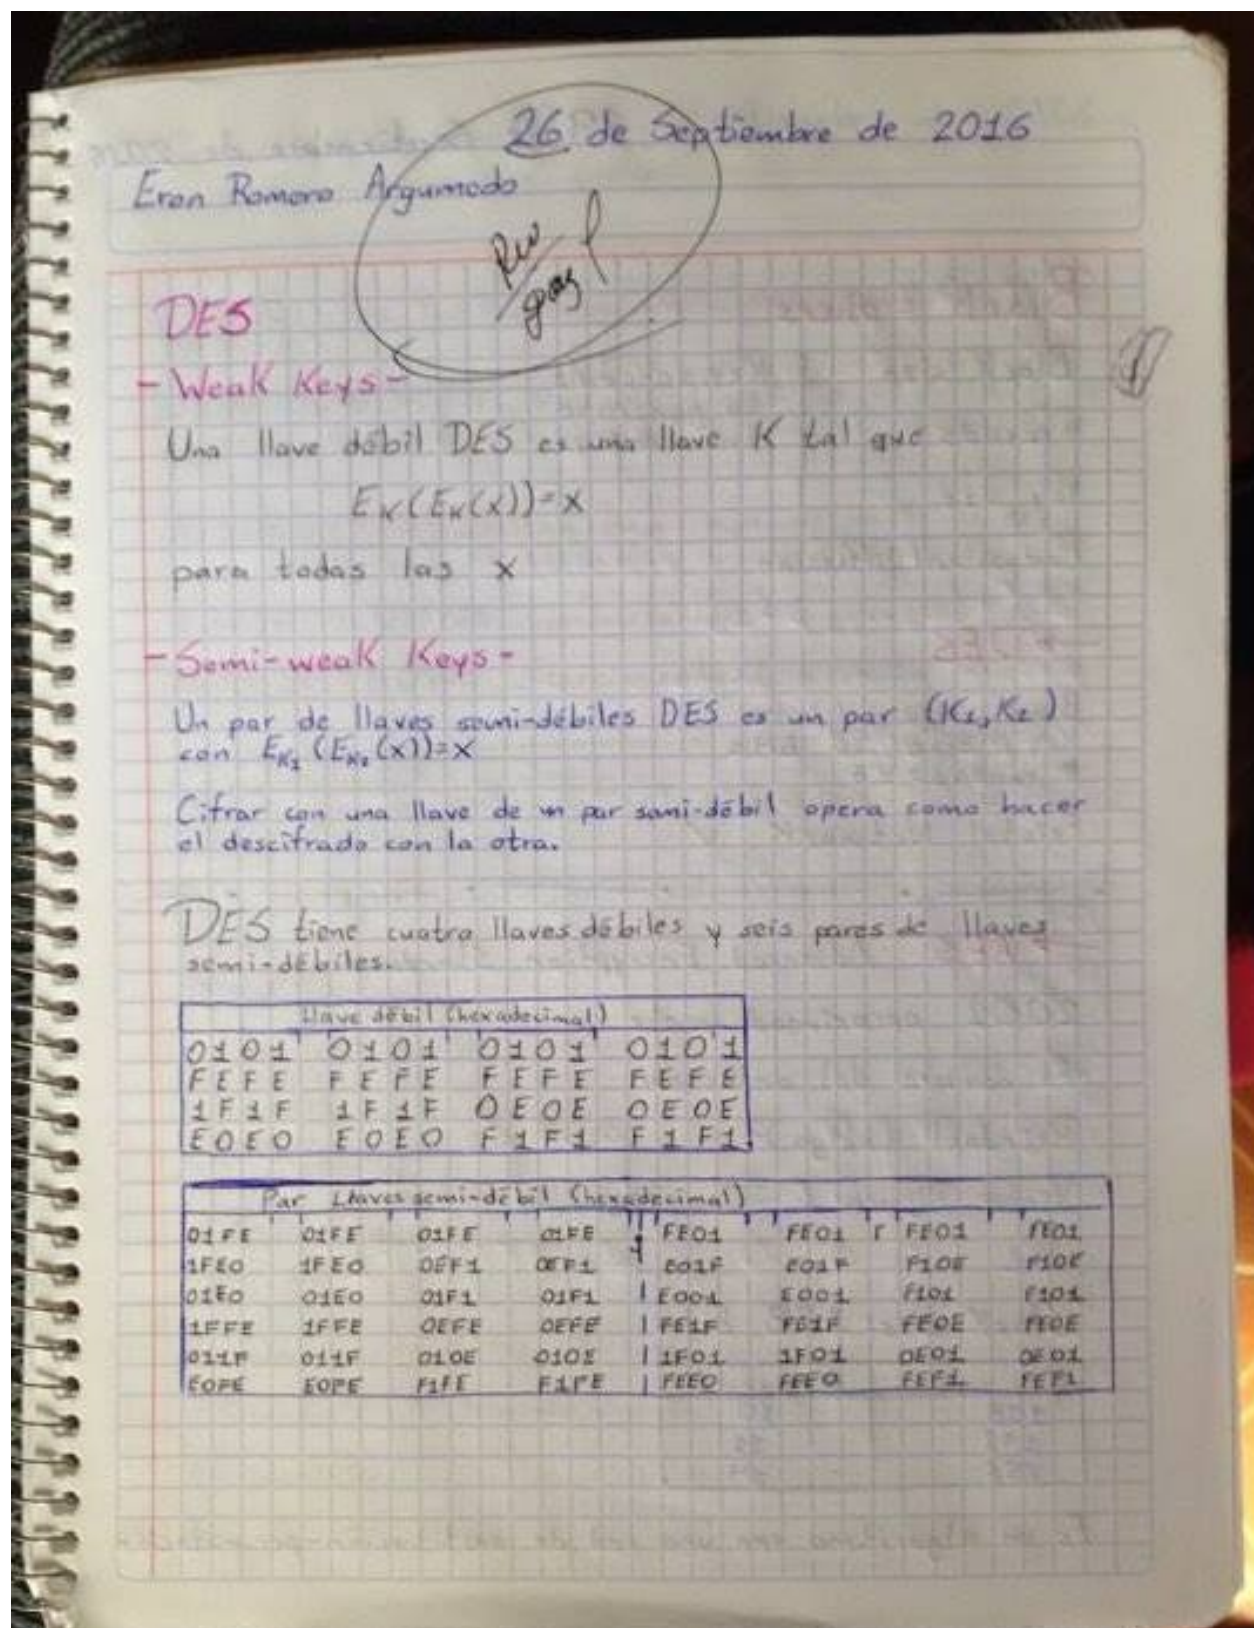 26 de Septiembre de 2016
Eron Romero Argumedo
DES
- Weak Keys -
Una llave débil DES es una llave K tal que
EK(EK(x))=x
para todas las x
- Semi-weak Keys -
Un par de llaves semi-débiles DES es un par (K1, K2)
con EK1(EK2(x))=x
Cifrar con una llave de un par semi-débil opera como hacer
el descifrado con la otra.
DES tiene cuatro llaves débiles y seis pares de llaves
semi-débiles.
Llave débil (hexadecimal)
0101 0101 0101 0101
FEFE FEFE FEFE FEFE
1F1F 1F1F 0E0E 0E0E
E0E0 E0E0 F1F1 F1F1
Par Llaves semi-débil (hexadecimal)
01FE 01FE 01FE 01FE , FE01 FE01 FE01 FE01
1FE0 1FE0 0EF1 0EF1 E01F E01F F10E F10E
01E0 01E0 01F1 01F1 E001 E001 F101 F101
1FFE 1FFE 0EFE 0EFE FE1F FE1F FE0E FE0E
011F 011F 010E 010E 1F01 1F01 0E01 0E01
E0FE E0FE F1FE F1FE FEE0 FEE0 FEF1 FEF1